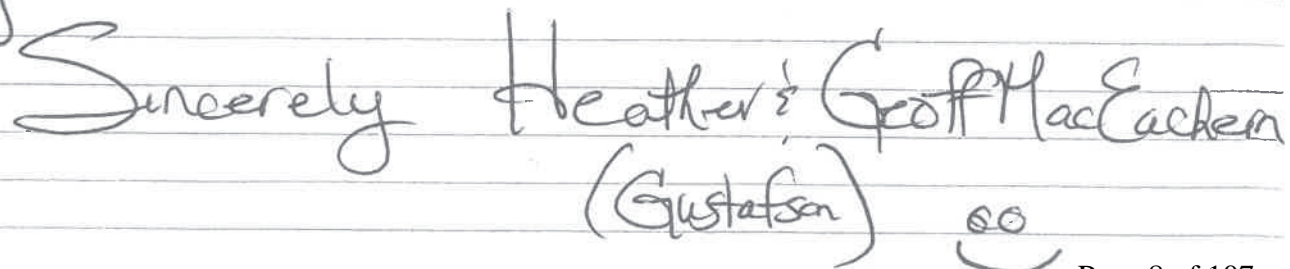 Sincerely Heather & Geoff MacEachern
(Gustafson)
Page 8 of 107